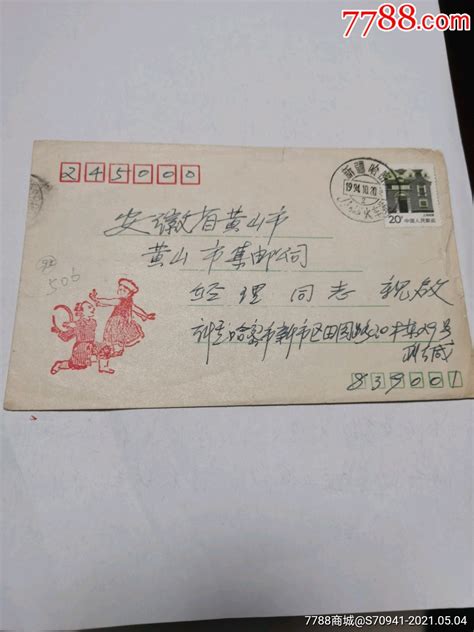 7788.com
245000
新疆哈密
1994.10.20
20分 中国人民邮政
安徽省黄山市
黄山市集邮公司
经理同志 亲启
506
新疆哈密市新市区田园路
839001
7788商城@S70941-2021.05.04